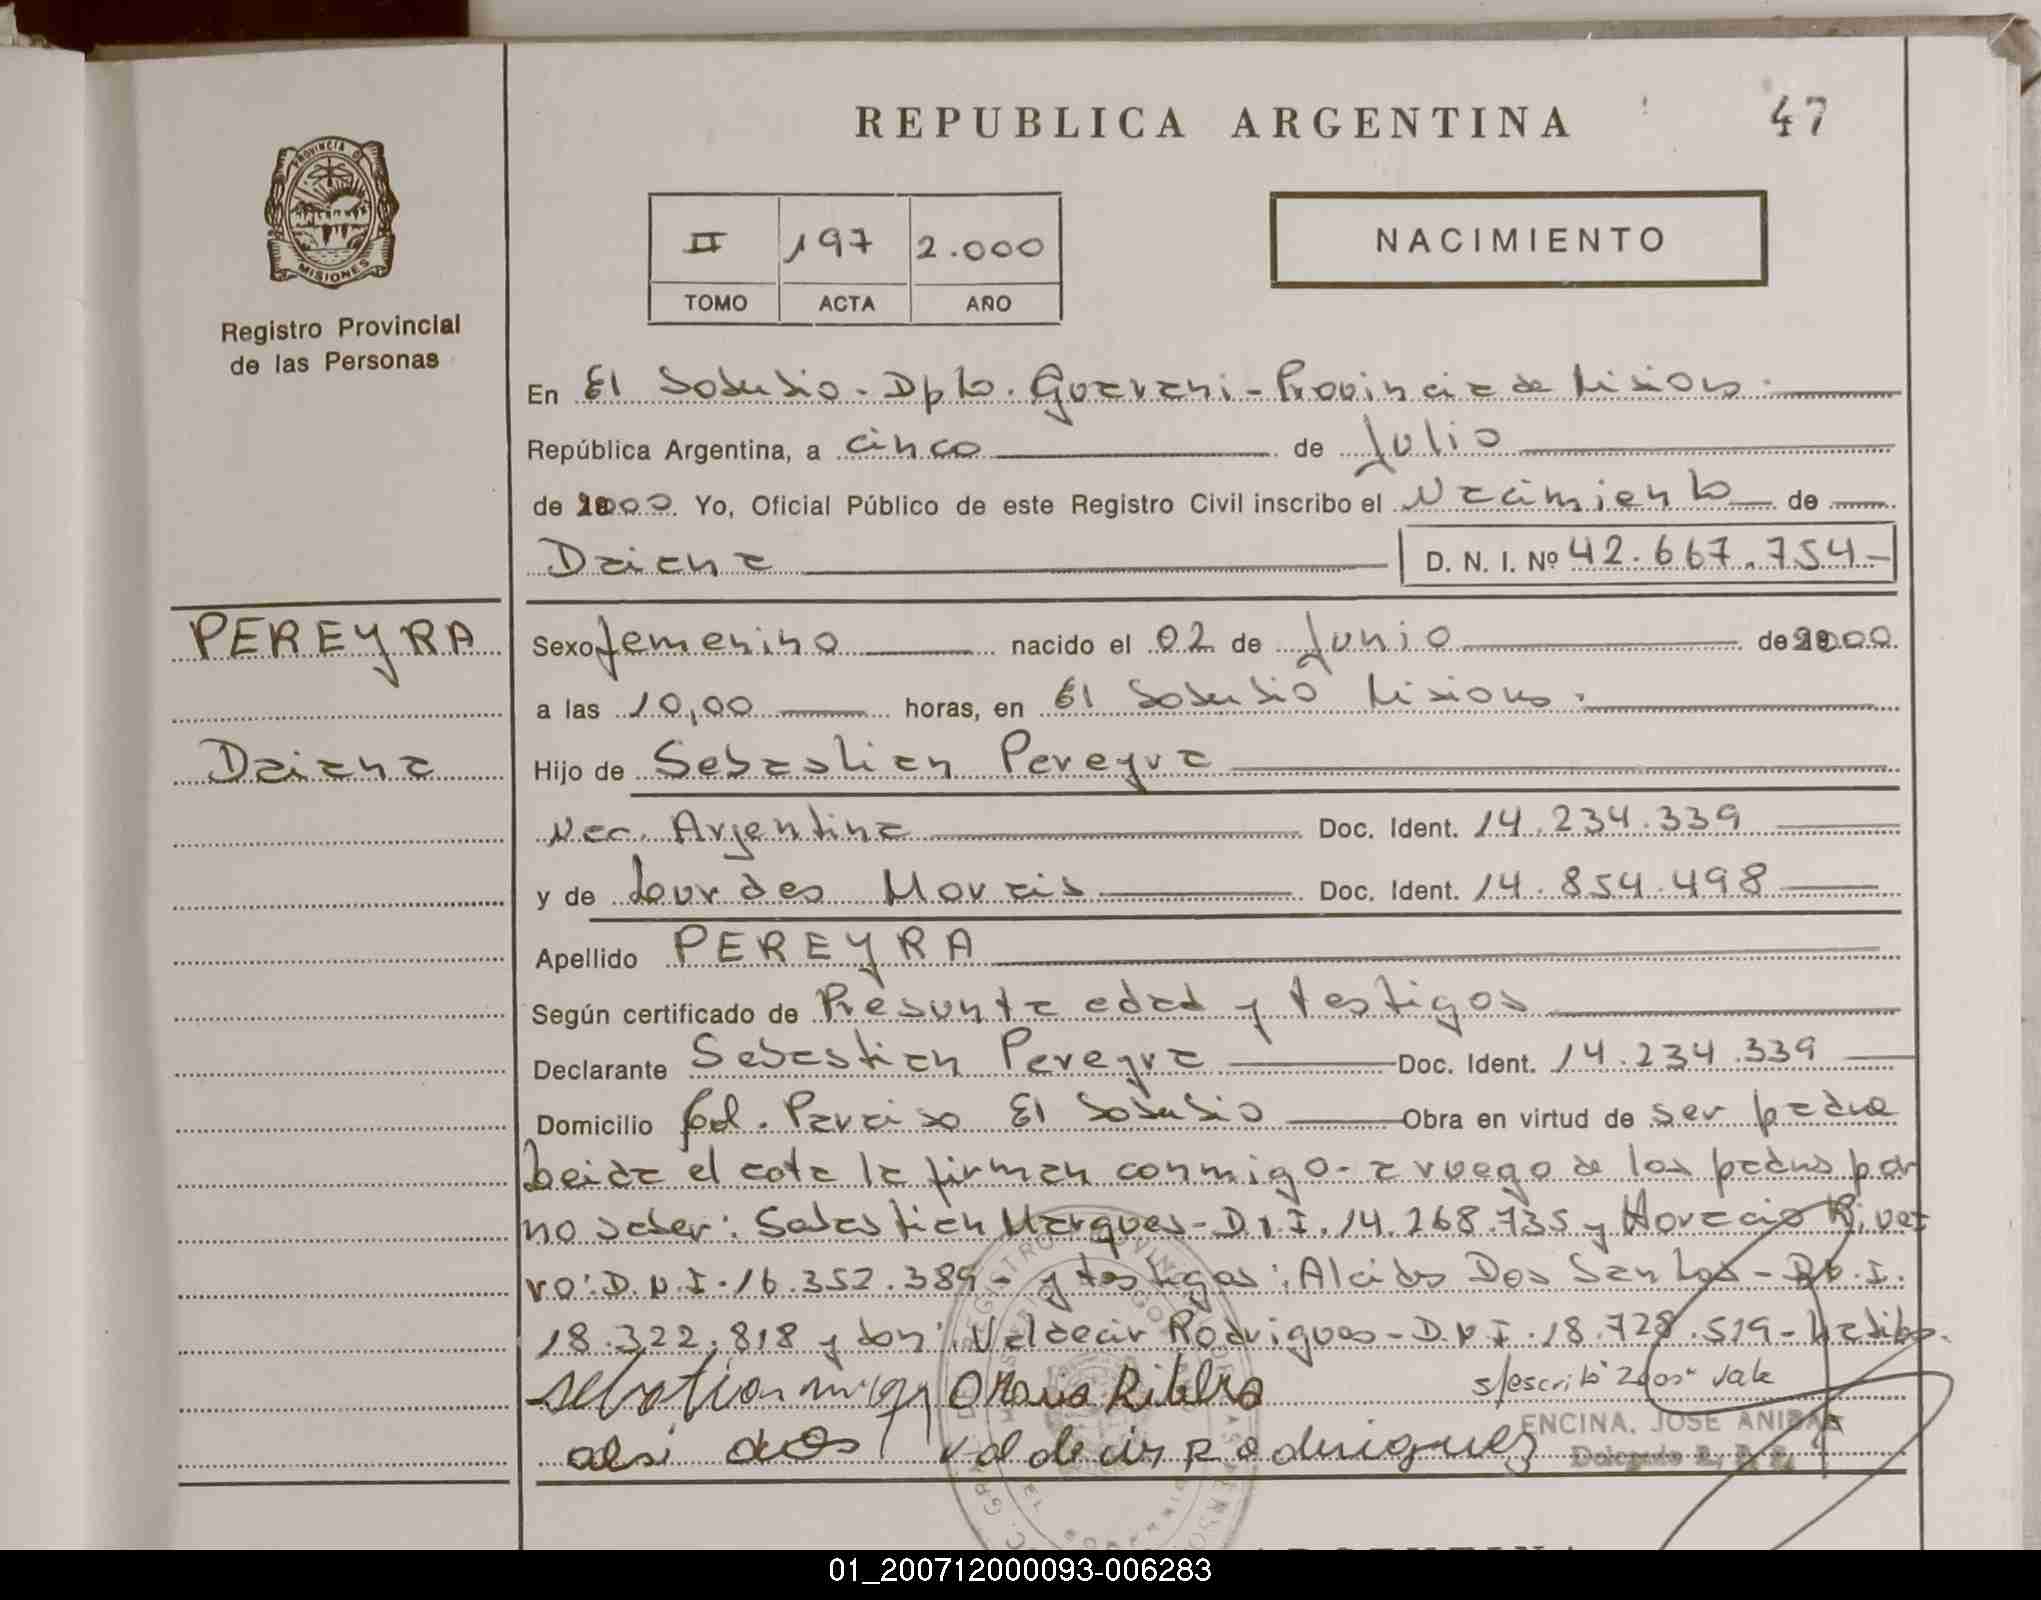 REPUBLICA ARGENTINA
47
PROVINCIA DE
MISIONES
Registro Provincial
de las Personas
II 197 2.000
TOMO ACTA AÑO
NACIMIENTO
En El Soberbio - Dpto. Guarani - Provincia de Misiones.
República Argentina, a cinco de Julio
de 2000. Yo, Oficial Público de este Registro Civil inscribo el Nacimiento de
Daiana D. N. I. Nº 42.667.754-
PEREYRA
Daiana
Sexo femenino nacido el 02 de Junio de 2000
a las 10,00 horas, en El Soberbio Misiones.
Hijo de Sebastian Pereyra
Nac. Argentina Doc. Ident. 14.234.339
y de Lourdes Morais Doc. Ident. 14.854.498
Apellido PEREYRA
Según certificado de Presunta edad y testigos
Declarante Sebastian Pereyra Doc. Ident. 14.234.339
Domicilio Col. Paraiso El Soberbio Obra en virtud de ser padre
Leida el acta la firman conmigo - a ruego de los padres por
no saber: Sebastian Marques - D.N.I. 14.268.735 y Horacio Rivei
ro: D.N.I. 16.352.389 - y testigos: Alcides Dos Santos - D.N.I.
18.322.818 y don: Valdecir Rodrigues - D.N.I. 18.728.519 -
s/escrito "2000" vale
valdecir Rodriguez
ENCINA, JOSE ANIBAL
Delegado R. P. P.
01_200712000093-006283